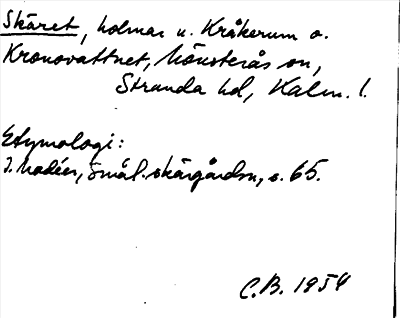 Skäret, holmar u. Kråkerum o.
Kronovattnet, Mönsterås sn,
Stranda hd, Kalm. l.
Etymologi:
I. Modéer, Smål. skärgårdsn, s. 65.
C.B. 1954